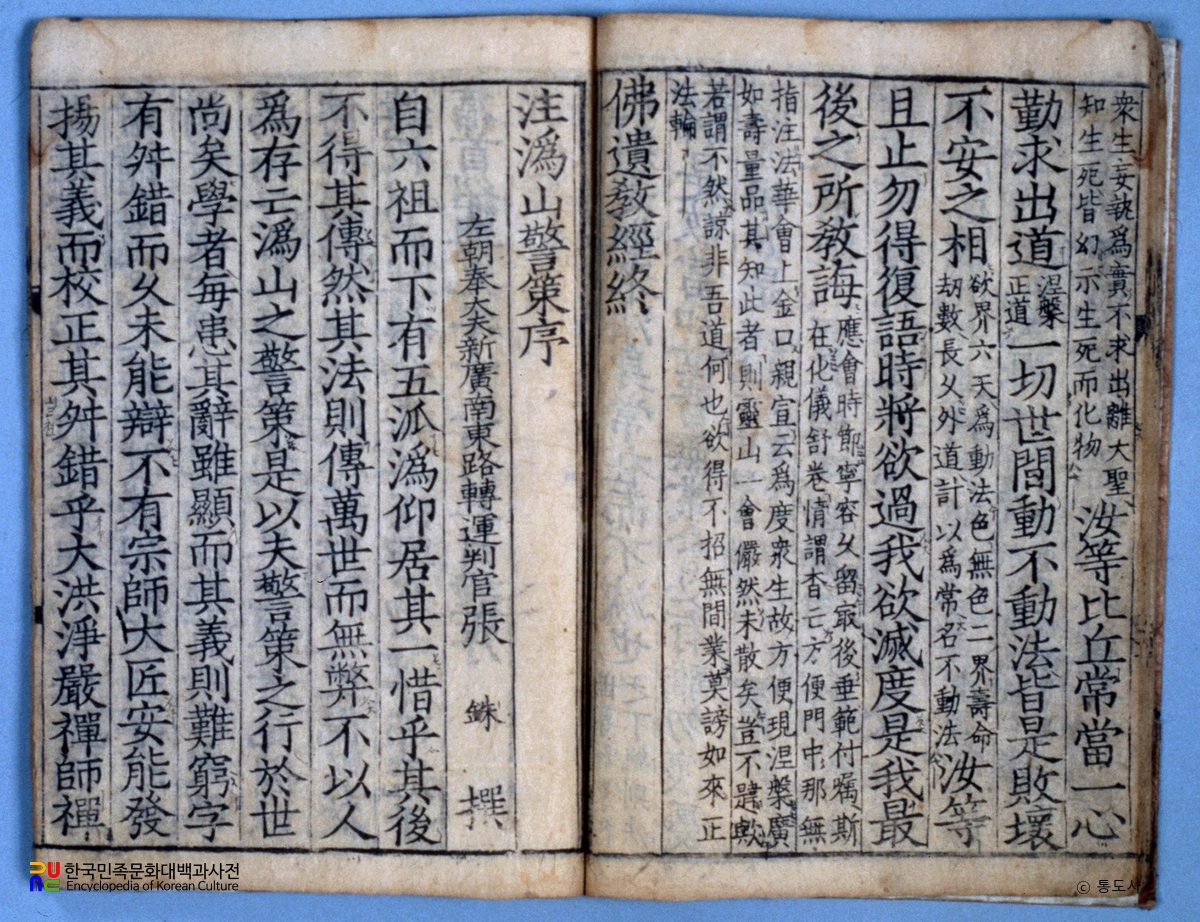 衆生妄執爲實不求出離大聖
知生死皆幻示生死而化物
汝等比丘常當一心
勤求出道
涅槃
正道
一切世間動不動法皆是敗壞
不安之相
欲界六天爲動法色無色二界壽命
劫數長久外道計以爲常名不動法
汝等
且止勿得復語時將欲過我欲滅度是我最
後之所敎誨
應會時節寧容久留冣後垂範付囑斯
在化儀舒卷情謂杳亡方便門中那無
指注法華會上金口親宣云爲度衆生故方便現涅槃廣
如壽量品其知此者則靈山一會儼然未散矣豈不韙歟
若謂不然諒非吾道何也欲得不招無間業莫謗如來正
法輪
佛遺敎經終
注潙山警策序
左朝奉大夫新廣南東路轉運判官張 銖 撰
自六祖而下有五派潙仰居其一惜乎其後
不得其傳然其法則傳萬世而無弊不以人
爲存亡潙山之警策是以夫警策之行於世
尚矣學者每患其辭雖顯而其義則難窮字
有舛錯而久未能辯不有宗師大匠安能發
揚其義而校正其舛錯乎大洪淨嚴禪師禪
한국민족문화대백과사전
Encyclopedia of Korean Culture
ⓒ 통도사